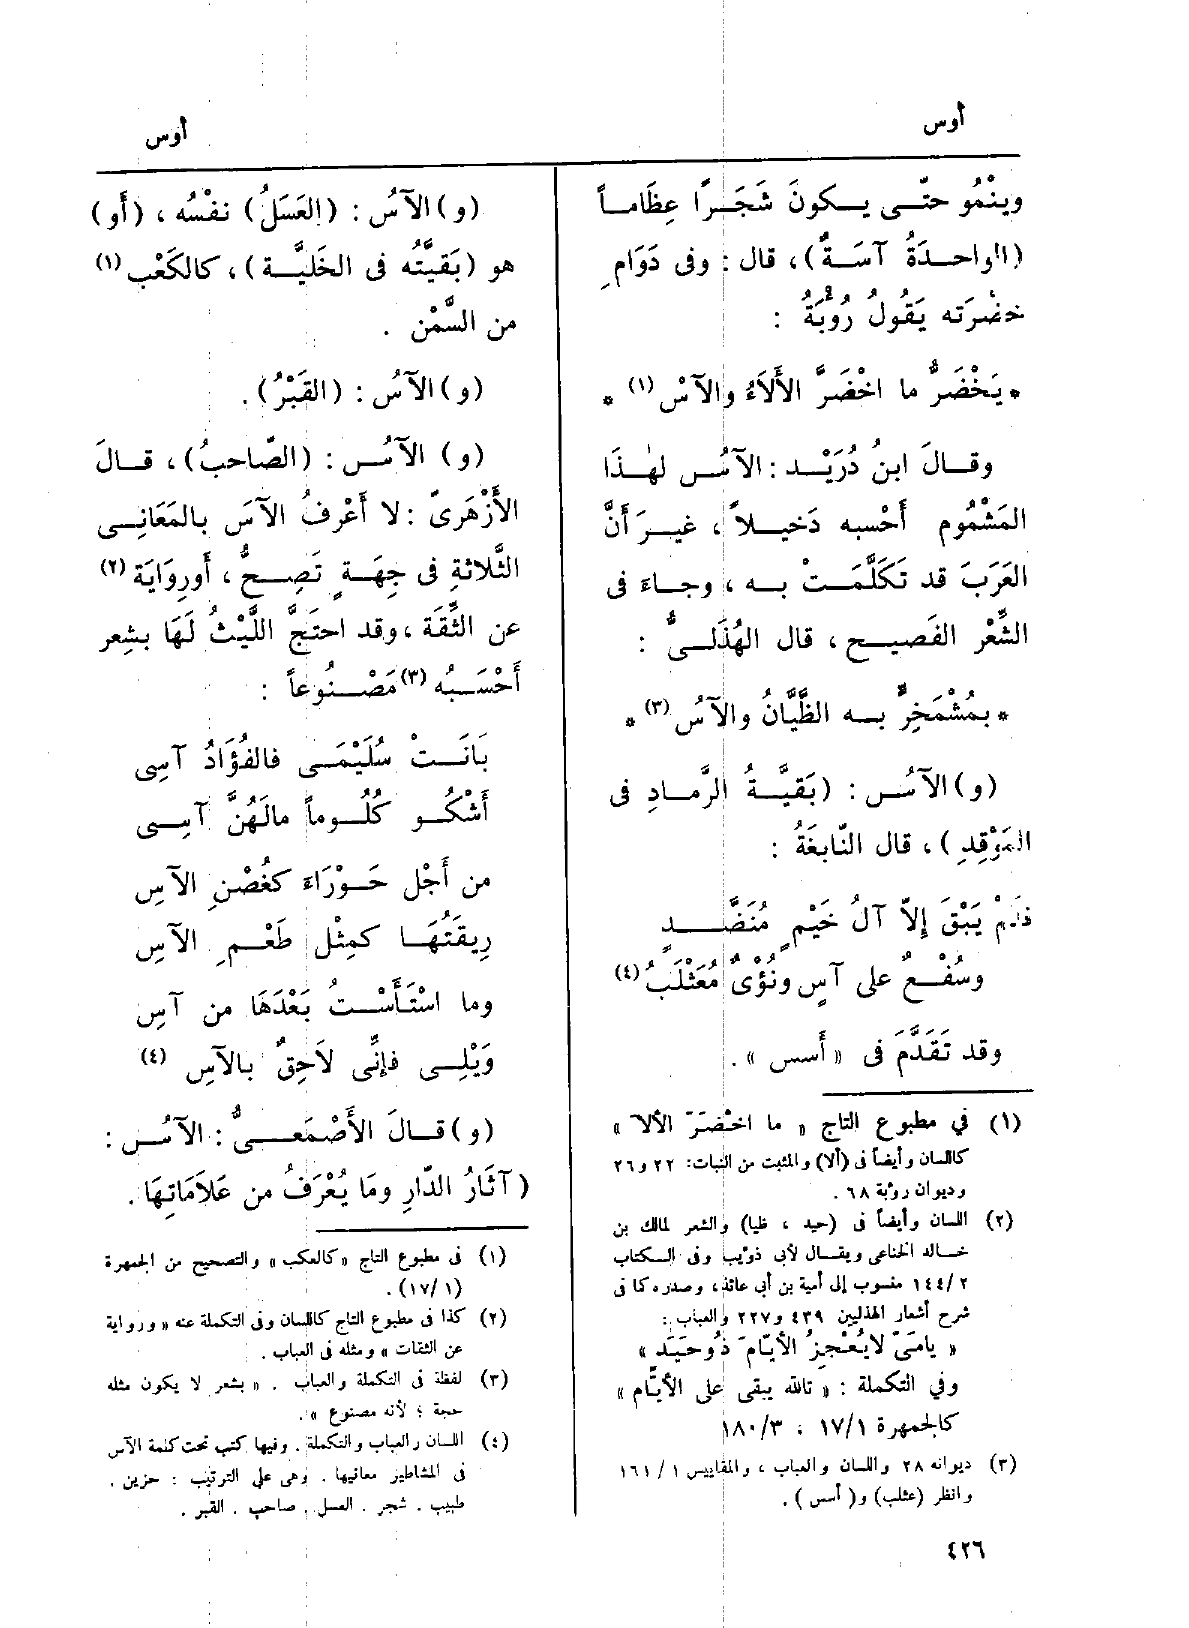 أوس
أوس
وينْمُو حتّى يكونَ شَجَرًا عِظَاماً
(الواحدَةُ آسَةٌ)، قال : وفى دَوَامِ
خضْرَته يَقُولُ رُؤْبَةُ :
* يَخْضَرُّ ما اخْضَرَّ الأَلاَءُ والآسْ (١) *
وقالَ ابنُ دُرَيْد : الآسُ لهٰذَا
المَشْمُوم أَحْسبه دَخيلاً ، غيرَ أَنَّ
العَرَبَ قد تَكَلَّمَتْ به ، وجاءَ فى
الشِّعْر الفَصيح ، قال الهُذَلىُّ :
* بمُشْمَخِرٍّ به الظَّيَّانُ والآسُ (٣) *
(و) الآسُ : (بَقيَّةُ الرَّمادِ فى
المَوْقِدِ ) ، قال النّابغَةُ :
فَلَمْ يَبْقَ إِلاّ آلُ خَيْمٍ مُنَضَّدٍ
وسُفْعٌ على آسٍ ونُؤْىٌ مُعَثْلَبُ (٤)
وقد تَقَدَّمَ فى « أَسس » .
(١) في مطبوع التاج « ما اخْضَرّ الألا »
كاللسان وأيضاً فى (ألا) والمثبت من النبات: ٢٢ و٢٦
وديوان رؤبة ٦٨ .
(٢) اللسان وأيضاً فى (حيد ، ظيا) والشعر لمالك بن
خالد الخناعى ويقال لأبى ذؤيب وفى الكتاب
٢/١٤٤ منسوب إلى أمية بن أبي عائذ، وصدره كما فى
شرح أشعار الهذليين ٤٣٩ و٢٢٧ والعباب :
« يامَىّ لايُعْجِزُ الأيّامَ ذُوحيَد »
وفي التكملة : « تالله يبقى على الأيَّام »
كالجمهرة ١/١٧ ، ٣/١٨٠
(٣) ديوانه ٢٨ واللسان والعباب ، والمقاييس ١/ ١٦١
وانظر (عثلب) و( أسس ) .
(و) الآسُ : (العَسَلُ) نفْسُه ، (أَو)
هو (بَقيَّتُه فى الخَليَّة) ، كالكَعْب (١)
من السَّمْن .
(و) الآسُ : (القَبْرُ) .
(و) الآسُ : (الصّاحبُ) ، قالَ
الأَزْهَرىّ : لا أَعْرفُ الآسَ بالمَعَانِى
الثَّلاثةِ فى جِهَةٍ تَصِحُّ ، أَورِوَايَة (٢)
عن الثِّقَة ، وقد احتَجَّ اللَّيْثُ لَهَا بشِعر
أَحْسَبُه (٣) مَصْنُوعاً :
بَانَتْ سُلَيْمَى فالفُؤَادُ آسِى
أَشْكُو كُلُوماً مالَهُنَّ آسِى
من أَجْل حَوْرَاءَ كغُصْنِ الآسِ
رِيقَتُهَا كمِثْل طَعْمِ الآسِ
وما اسْتَأَسْتُ بَعْدَهَا من آسِ
وَيْلِى فإِنِّى لاَحِقٌ بالآسِ (٤)
(و) قالَ الأَصْمَعىُّ : الآسُ :
( آثارُ الدّارِ وما يُعْرَفُ من عَلاَمَاتِهَا .
(١) فى مطبوع التاج «كالعكب» والتصحيح من الجمهرة
(١/ ١٧) .
(٢) كذا فى مطبوع التاج كاللسان وفى التكملة عنه « ورواية
عن الثقات » ومثله فى العباب .
(٣) لفظة فى التكملة والعباب . « بشعر لا يكون مثله
حجة ؛ لأنه مصنوع » .
(٤) اللسان والعباب والتكملة . وفيها كتب تحت كلمة الآس
فى المشاطير معانيها . وهى على الترتيب : حزين .
طبيب . شجر . العسل . صاحب . القبر .
٤٢٦